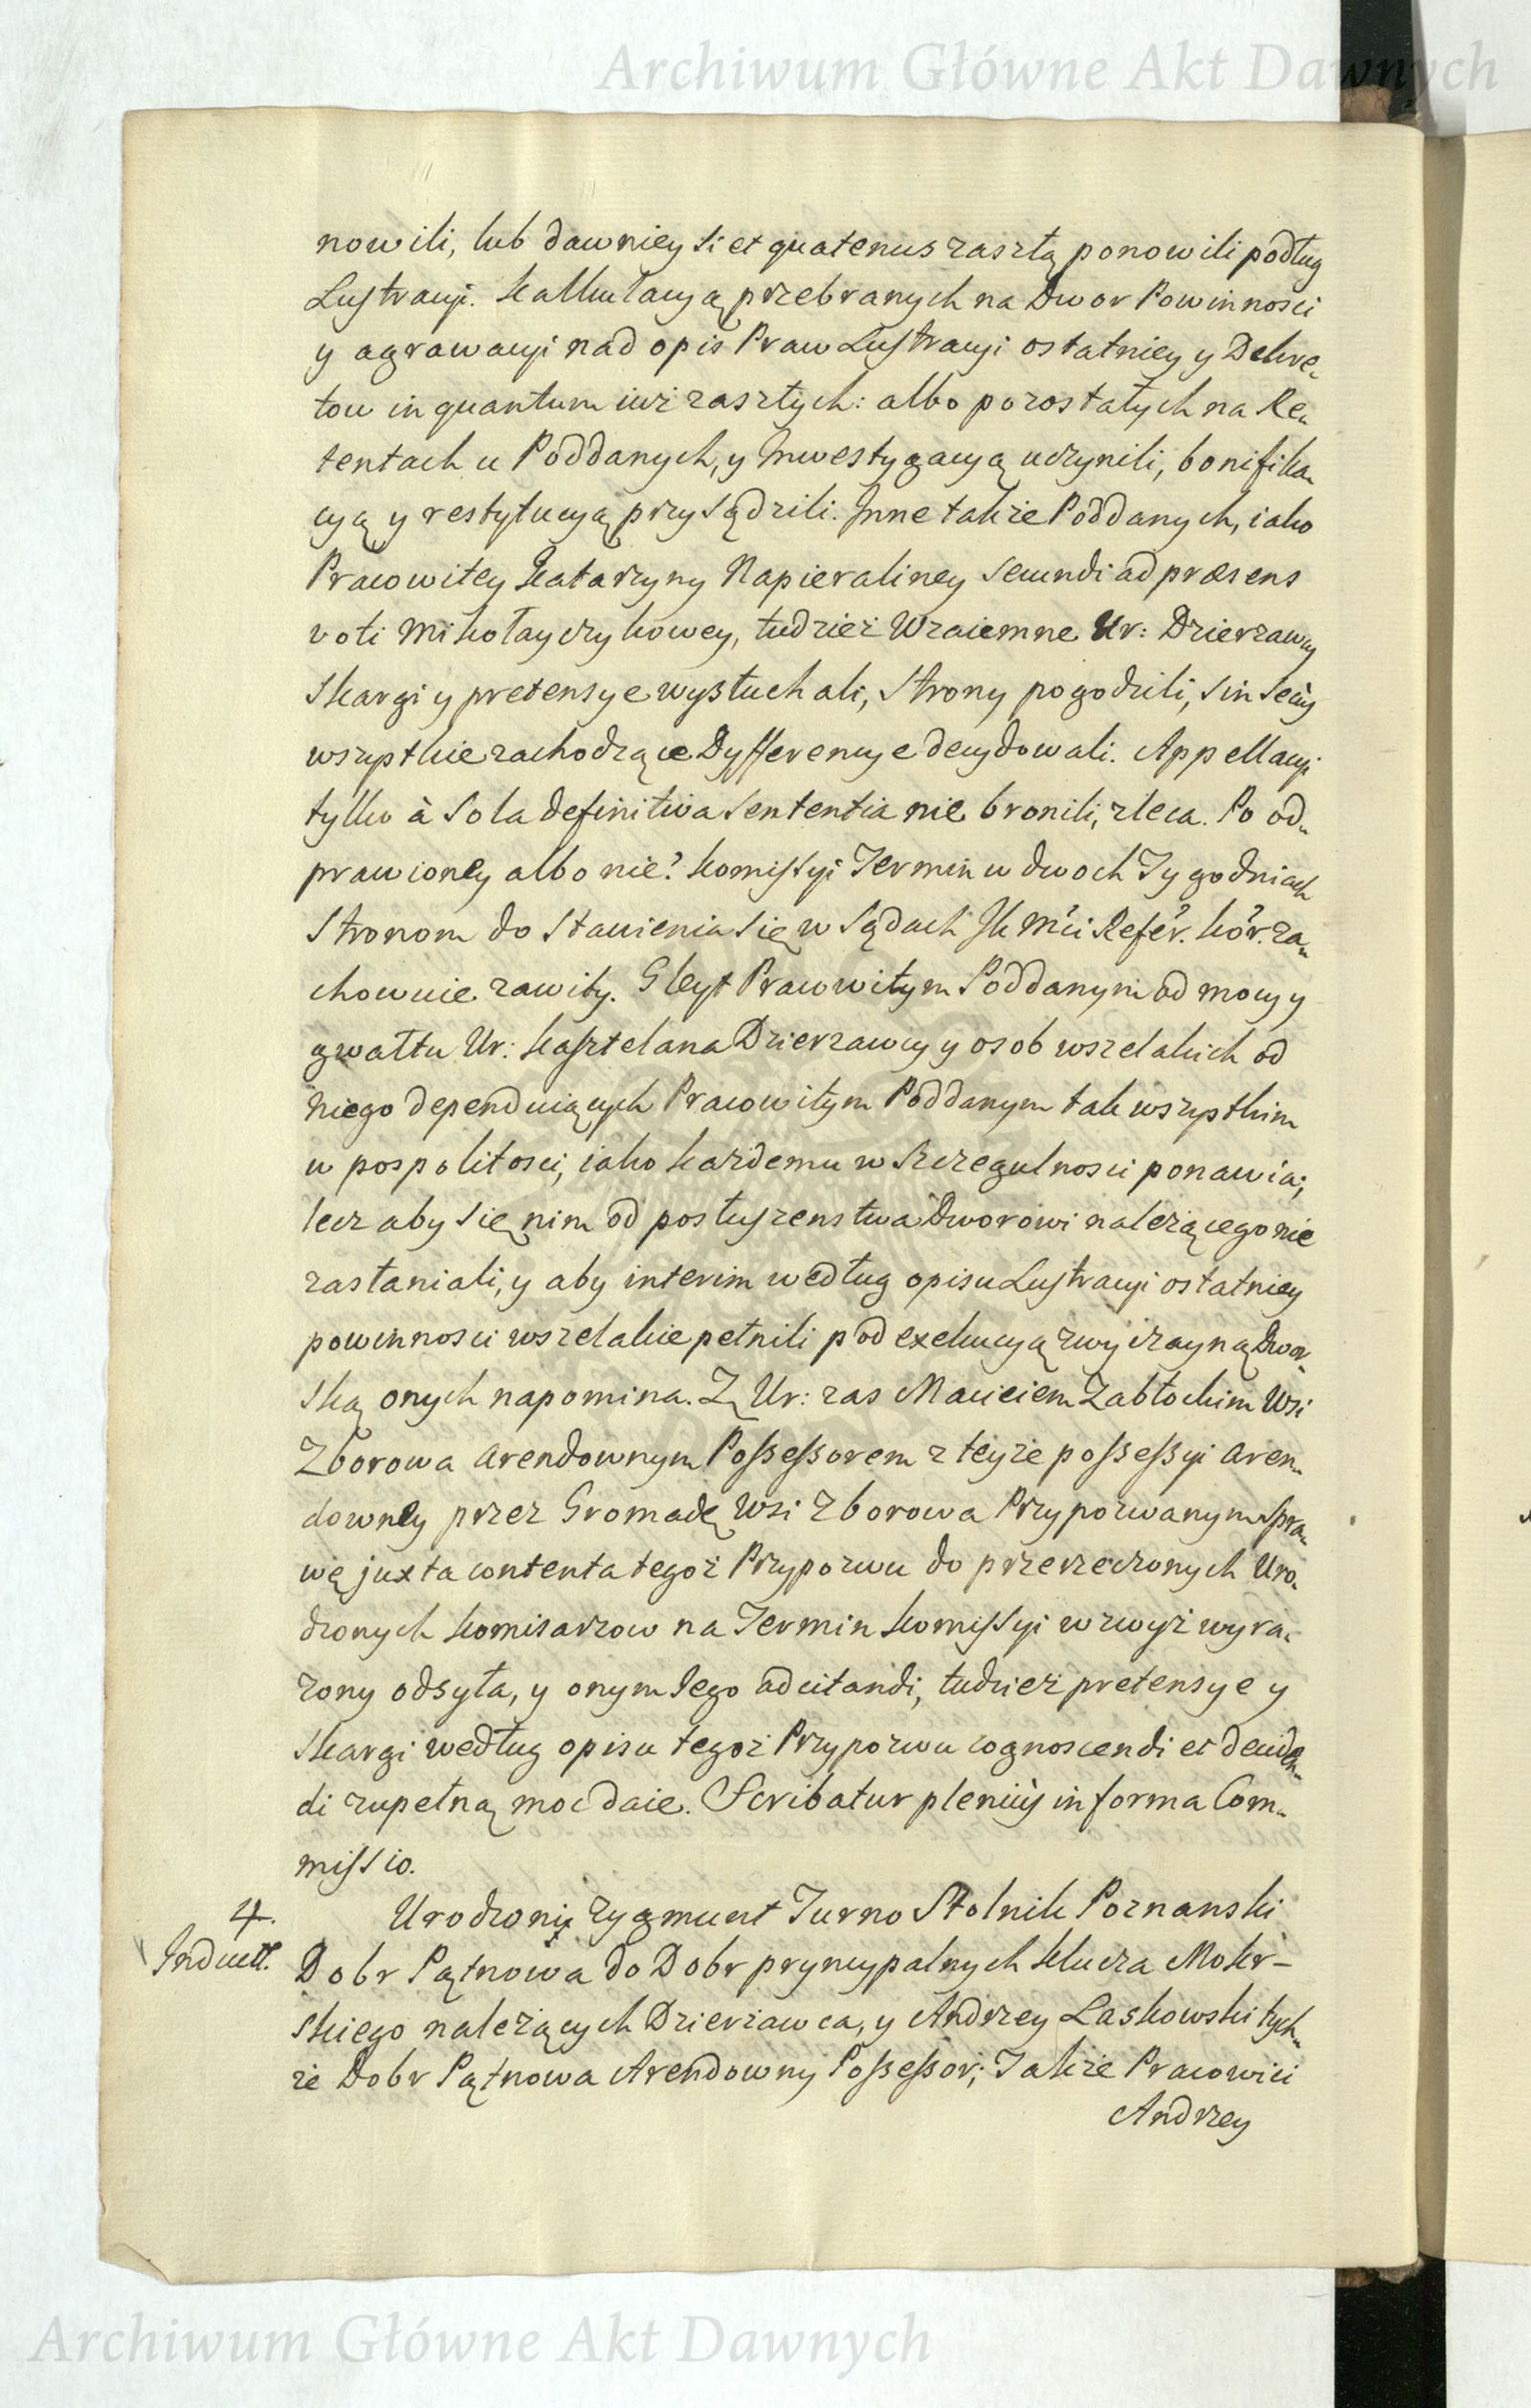 Archiwum Główne Akt Dawnych
nowili, lub dawniey si et quatenus zaszłą ponowili podług
Lustracyi. Kalkulacyą przebranych na Dwor Powinnosci
y agrawacyi nad opis Praw Lustracyi ostatniey y Dekre„
tow in quantum iuż zaszłych: albo pozostałych na Re„
tentach u Poddanych, y Inwestygacyą uczynili, bonifika„
cyą y restytucyą przysądzili. Inne także Poddanych, iako
Pracowitey Katarzyny Napieraliney secundi ad præsens
voti Mikołayczykowey, tudzież Wzaiemne Ur: Dzierzawcy
Skargi y pretensye wysłuchali, Strony pogodzili, sin secùs
wszystkie zachodzące Dyfferencye decydowali. Appellacyi
tylko à sola definitiva sententia nie bronili, zleca. Po od„
prawioney albo nie? Kommissyi Termin w dwoch Tygodniach
Stronom do stawienia się w Sądach JK Mći Refer. Kor. za„
chowuie zawity. Gleyt Pracowitym Poddanym od mocy y
gwałtu Ur: Kasztelana Dzierzawcy y osob wszelakich od
niego dependuiących Pracowitym Poddanym tak wszystkim
w pospolitosci, iako każdemu w szczegulnosci ponawia;
lecz aby się nim od posłuszenstwa Dworowi należącego nie
zasłaniali, y aby interim według opisu Lustracyi ostatniey
powinnosci wszelakie pełnili pod exekucyą zwyczayną Dwor„
ską onych napomina. Z Ur: zas Macieiem Zabłockim Wsi
Zborowa arendownym Possessorem z teyże possessyi aren„
downey przez Gromadę Wsi Zborowa Przypozwanym Spra„
wę juxta contenta tegoż Przypozwu do przerzeczonych Uro„
dzonych Komisarzow na Termin Komissyi wzwyż wyra„
żony odsyła, y onym Jego adcitandi, tudzież pretensye y
Skargi według opisu tegoż Przypozwu cognoscendi et deciden„
di zupełną moc daie. Scribatur pleniùs in forma Com„
missio.
4.
Induct.
Urodzony Zygmunt Turno Stolnik Poznanski
Dobr Pątnowa do Dobr pryncypalnych Klucza Mokr-
skiego należących Dzierżawca, y Andrzey Laskowski tych„
że Dobr Pątnowa Arendowny Possessor; Także Pracowici
Andrzey
Archiwum Główne Akt Dawnych